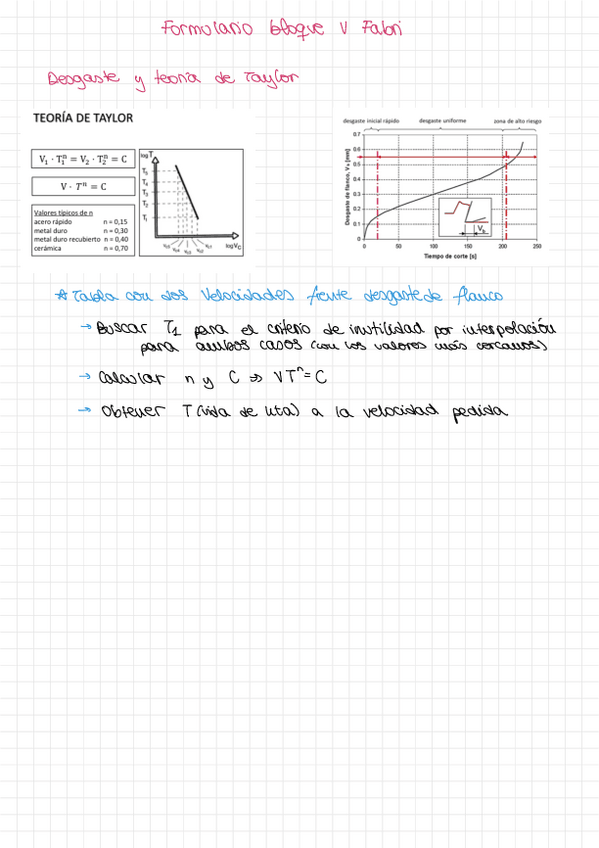 Formulario bloque V Fabri
Desgaste y teoria de Taylor
TEORÍA DE TAYLOR
V₁ · T₁ⁿ = V₂ · T₂ⁿ = C
V · Tⁿ = C
Valores típicos de n
acero rápido n = 0,15
metal duro n = 0,30
metal duro recubierto n = 0,40
cerámica n = 0,70
log T
T₅
T₄
T₃
T₂
T₁
V꜀₅ V꜀₄ V꜀₃ V꜀₂ V꜀₁ log V꜀
desgaste inicial rápido desgaste uniforme zona de alto riesgo
Desgaste de flanco, Vʙ [mm]
0.7
0.6
0.5
0.4
0.3
0.2
0.1
0
Vʙ
0 50 100 150 200 250
Tiempo de corte [s]
* Tabla con dos velocidades frente desgaste de flanco
→ Buscar T₁ para el criterio de inutilidad por interpolación
para ambos casos (con los valores más cercanos)
→ Calcular n y C ⇒ VTⁿ = C
→ Obtener T (vida de uta) a la velocidad pedida